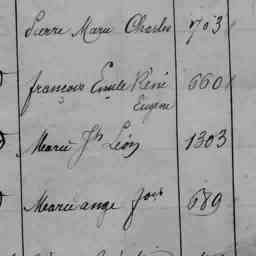 Pierre Marie Charles 703
françois Emile Réné 6601
Eugène
Marie Jh Léon 1303
Marie ange Joseph 689